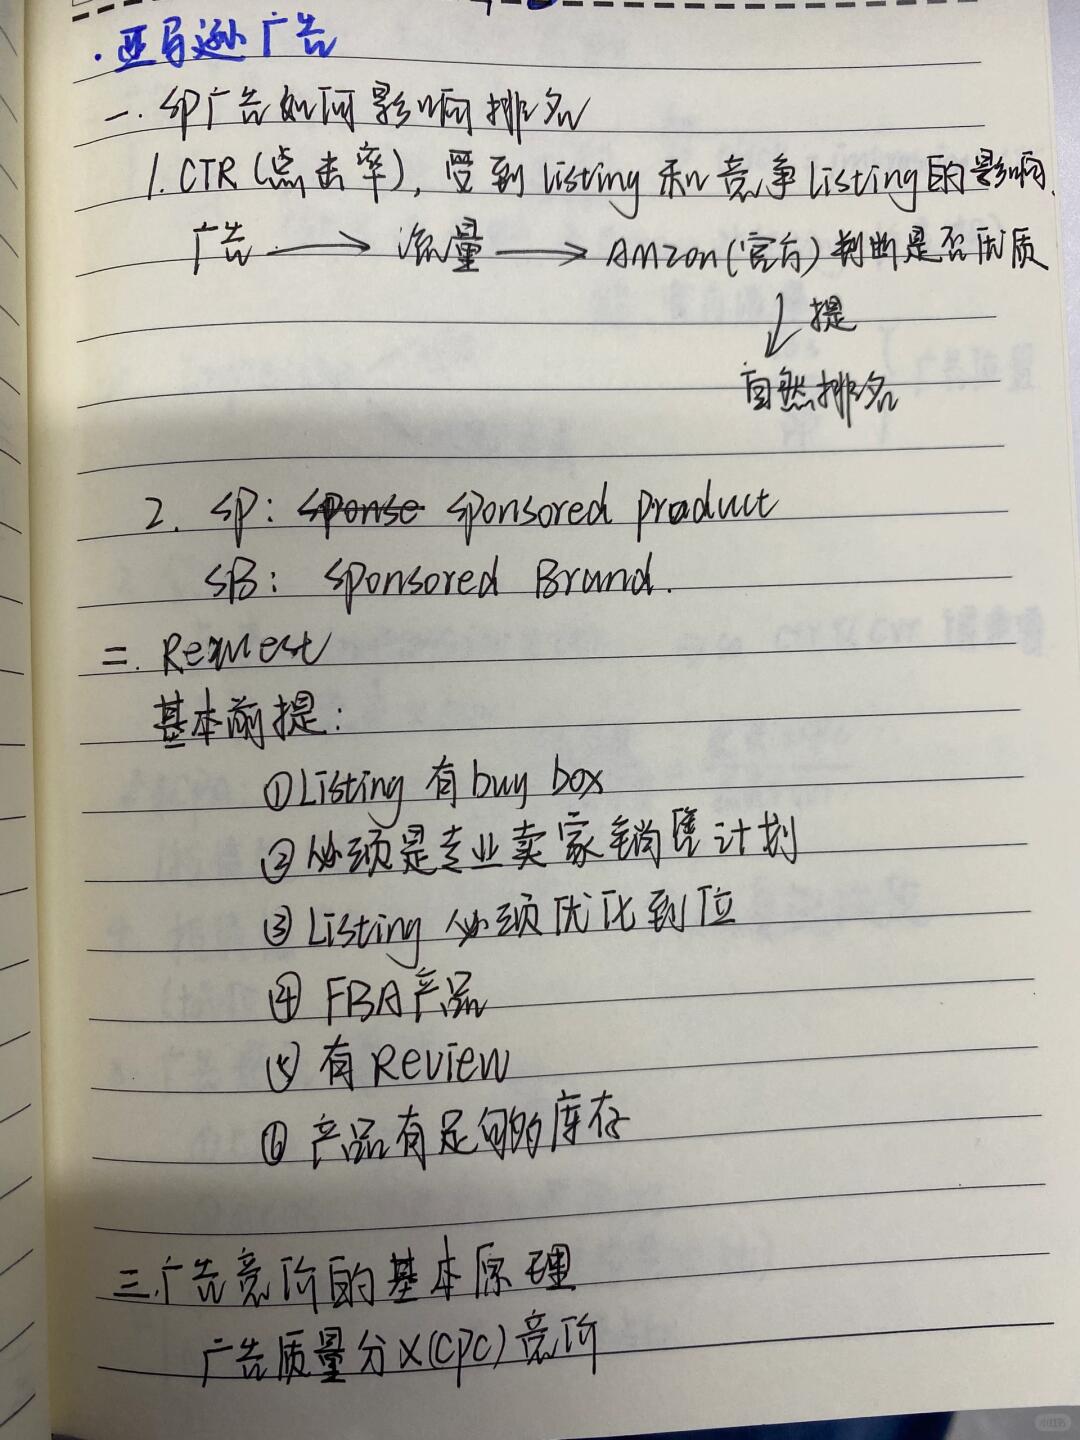 ·亚马逊广告
一.SP广告如何影响排名
1.CTR(点击率),受到listing和竞争listing的影响.
广告 → 流量 → Amzon(官方)判断是否优质
↓提
自然排名
2. SP: sponse sponsored product
SB: sponsored Brand.
二. Request
基本前提:
①Listing有buy box
②必须是专业卖家销售计划
③Listing必须优化到位
④FBA产品
⑤有Review
⑥产品有足句的库存
三.广告竞价的基本原理
广告质量分X(CPC)竞价
小红书